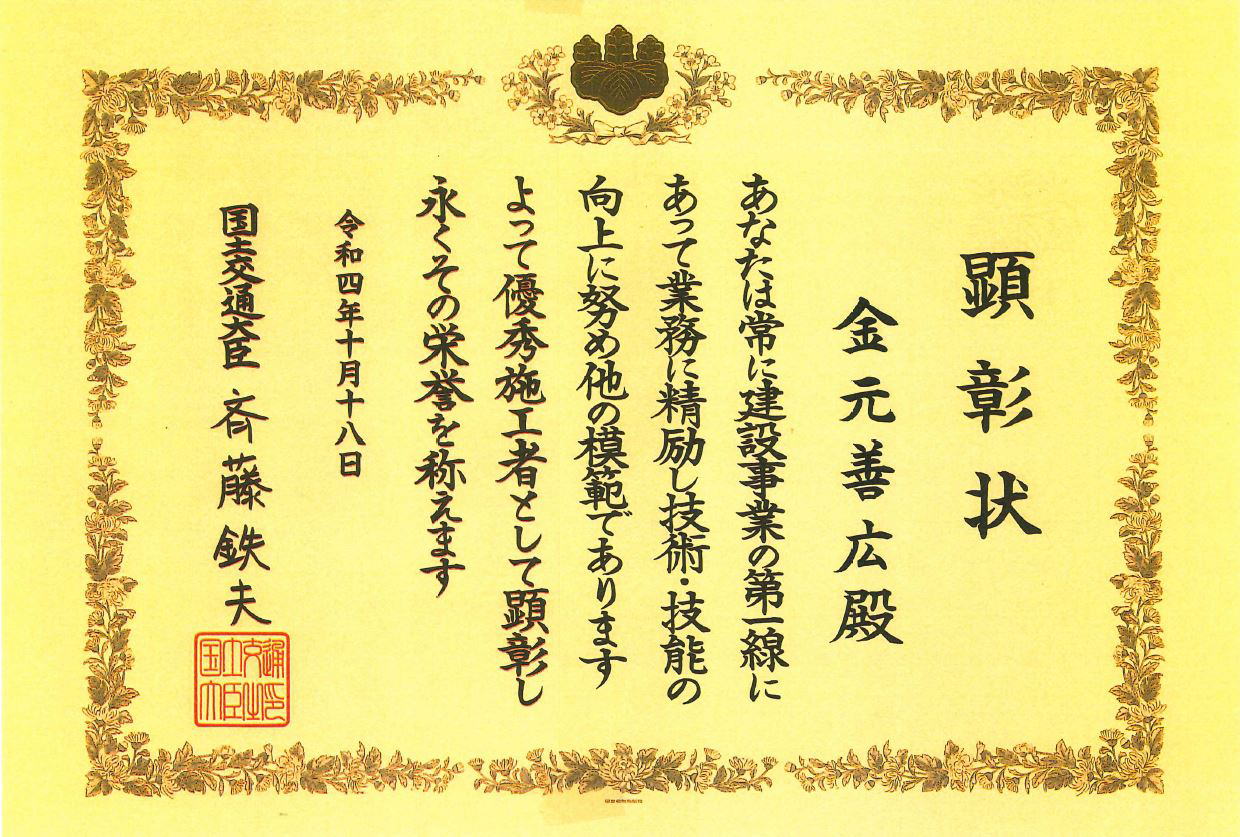 顕彰状
金元善広殿
あなたは常に建設事業の第一線に
あって業務に精励し技術・技能の
向上に努め他の模範であります
よって優秀施工者として顕彰し
永くその栄誉を称えます
令和四年十月十八日
国土交通大臣 斉藤鉄夫
国土交通
大臣之印